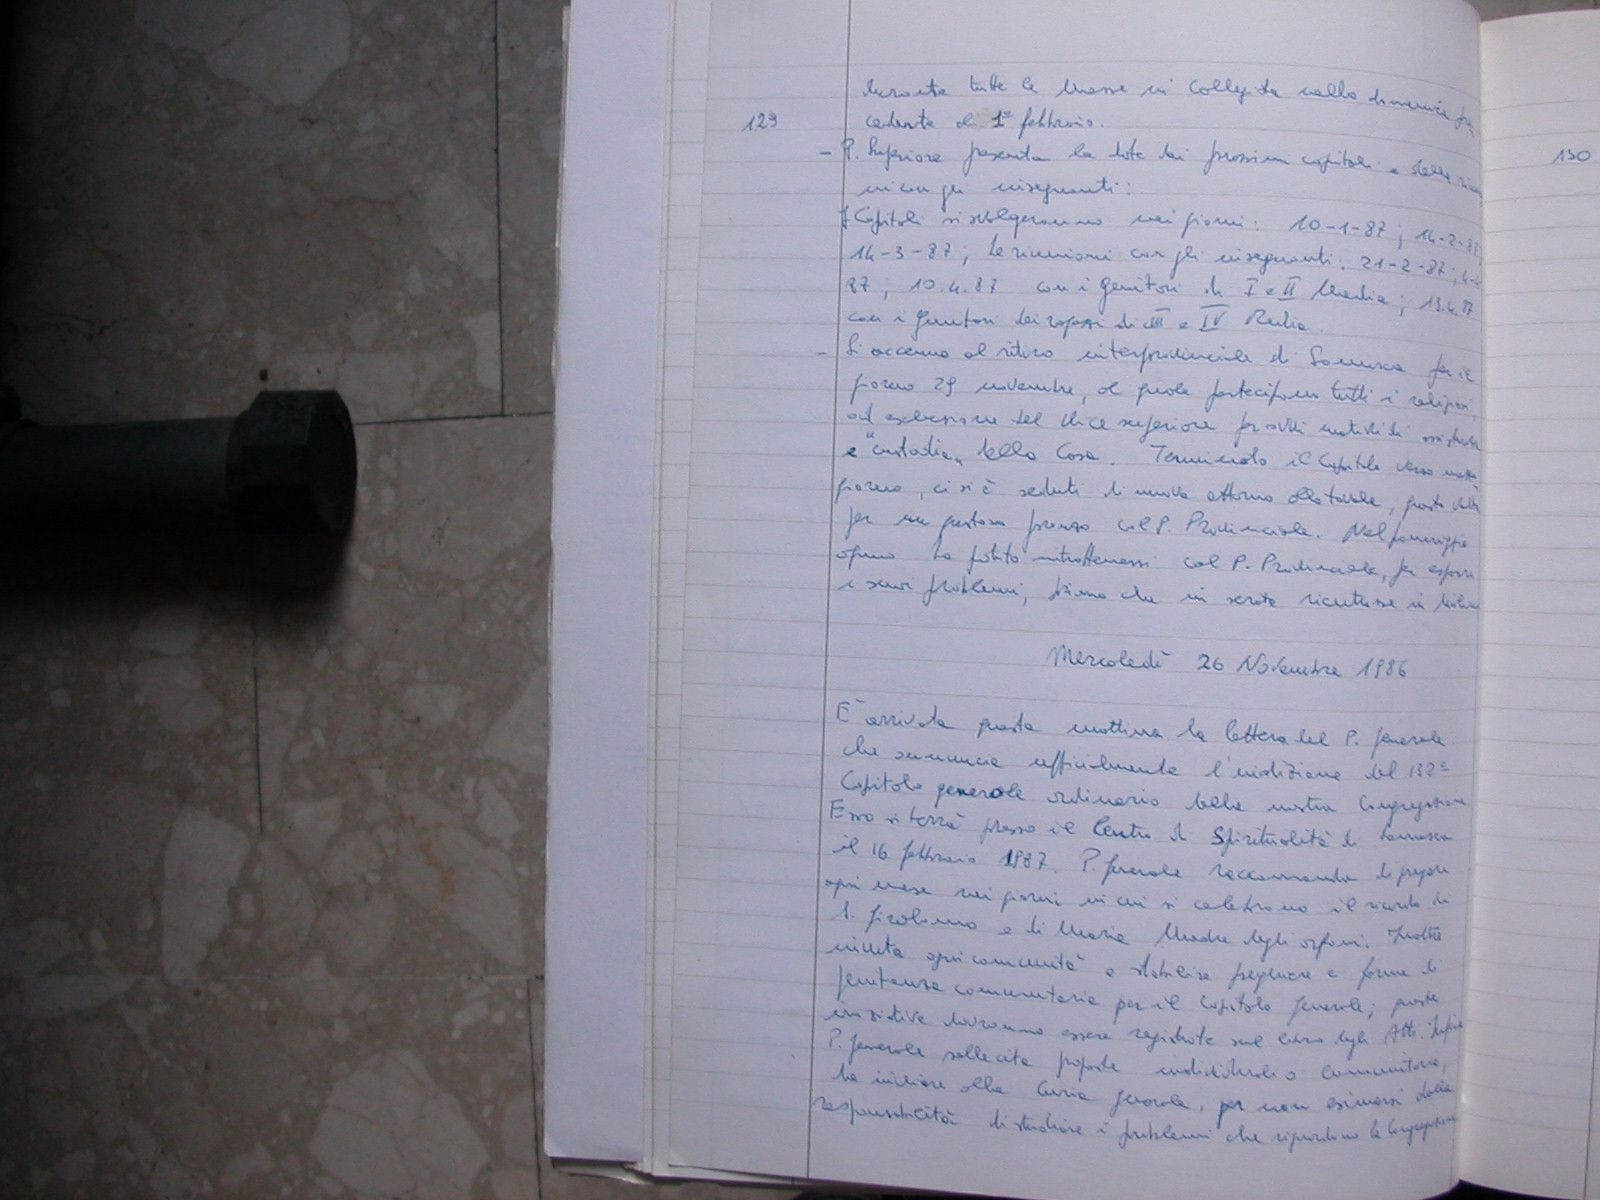 durante tutte le Messe in Collegio nella domenica
129
cadente il 1º febbraio.
- P. Superiore presenta la date dei prossimi capitoli e delle
150
nioni con gli insegnanti:
I Capitoli si svolgeranno nei giorni: 10-1-87; 14-2-87
14-3-87; le riunioni con gli insegnanti: 21-2-87; 4-4-
87; 10.4.87 con i genitori di I e II Media; 13.4.87
con i genitori dei ragazzi di III e IV Media.
- Si accenna al ritiro interprovinciale di Somasca per il
giorno 29 novembre, al quale partecipano tutti i religiosi,
ad esclusione del Vice superiore per motivi di
e "custodia" della Casa. Terminato il Capitolo verso mezzo
giorno, ci si è seduti di nuovo attorno alla tavola, questa volta
per un gustoso pranzo col P. Provinciale. Nel pomeriggio
ognuno ha potuto intrattenersi col P. Provinciale, per esporre
i suoi problemi, prima che in serata rientrasse in
Mercoledì 26 Novembre 1986
È arrivata questa mattina la lettera del P. Generale
che annuncia ufficialmente l'indizione del 132º
Capitolo generale ordinario della nostra Congregazione
Esso si terrà presso il Centro di Spiritualità di Somasca
il 16 febbraio 1987. P. Generale raccomanda di pregare
ogni mese nei giorni in cui si celebrano il ricordo di
S. Girolamo e di Maria Madre degli orfani. Inoltre
invita ogni comunità a stabilire preghiere e forme di
penitenza comunitaria per il Capitolo generale; queste
iniziative dovranno essere registrate sul libro degli Atti. Infine
P. Generale sollecita proposte individuali o comunitarie,
da inviare alla Curia generale, per non esimersi dalla
responsabilità di studiare i problemi che riguardano la Congregazione